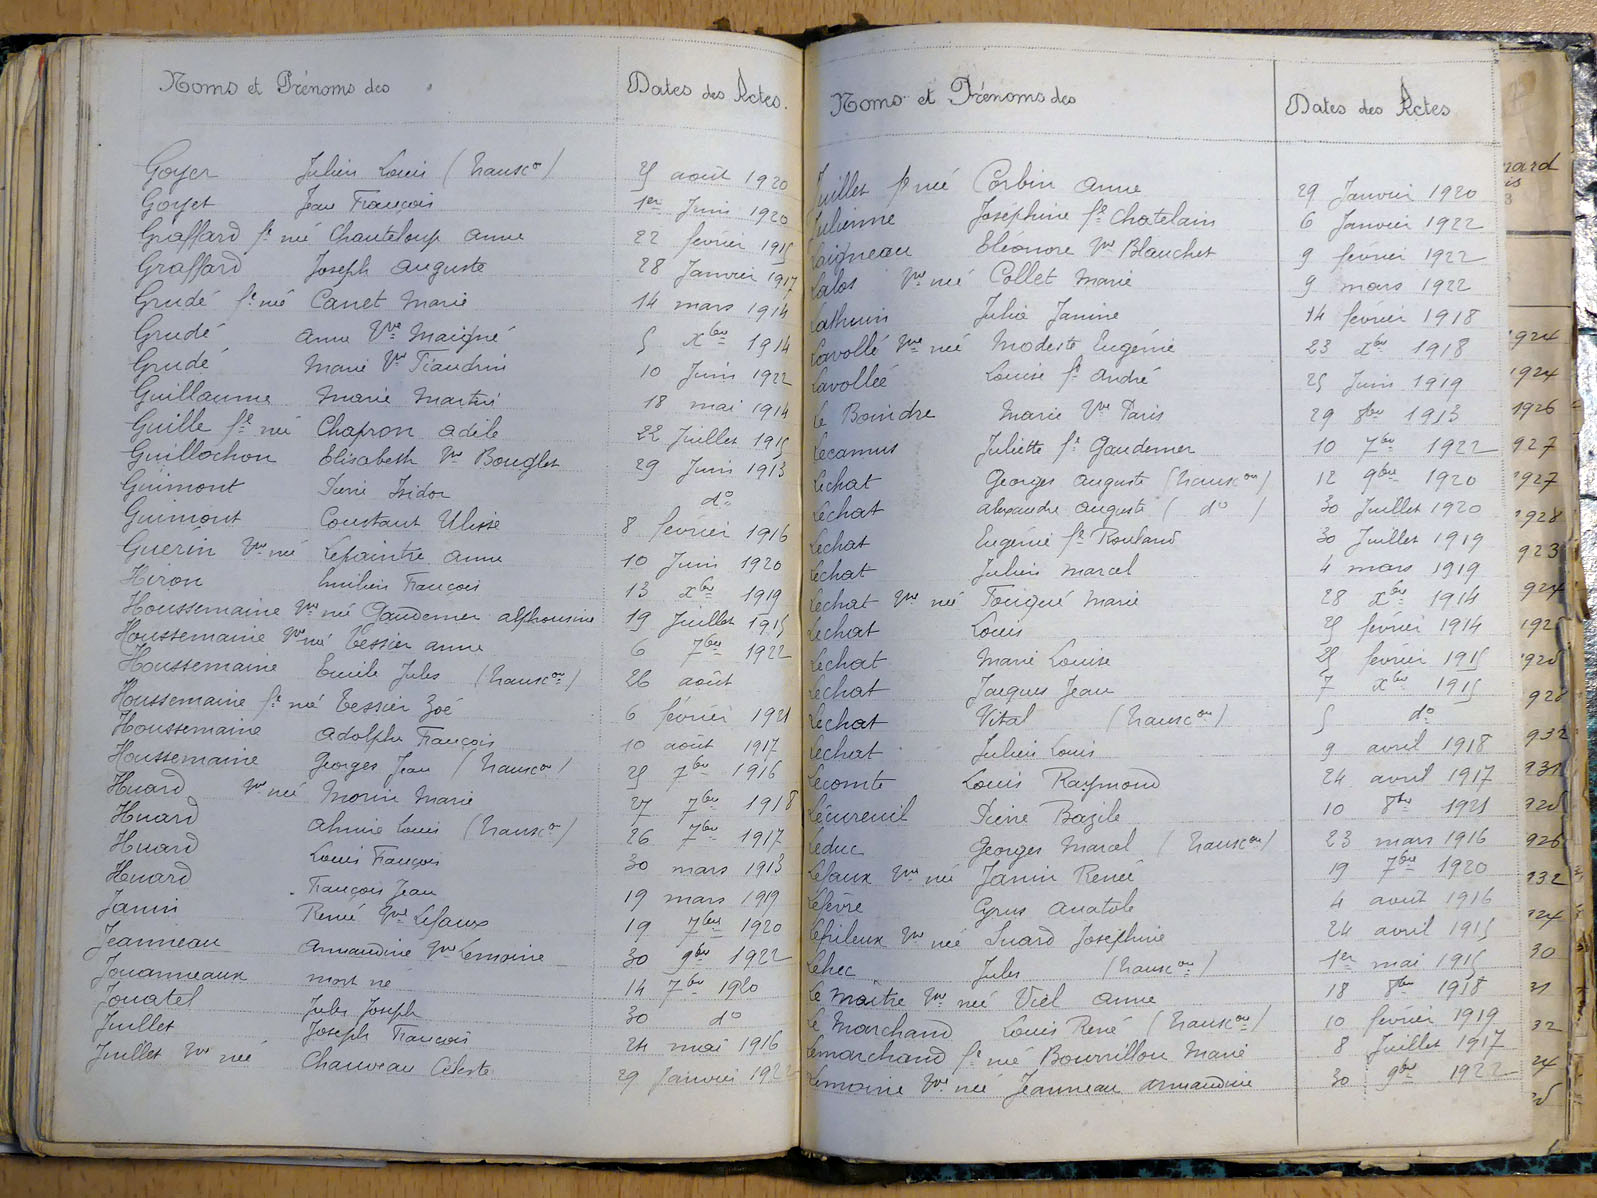 Noms et Prénoms des Dates des Actes.
Goyer Julien Louis (transcon) 25 août 1920
Goyet Jean François 1er Juin 1920
Graffard fe née Chanteloup Anne 22 février 1915
Graffard Joseph Auguste 28 Janvier 1917
Grudé fe née Canet Marie 14 mars 1914
Grudé Anne Vve Maigné 5 Xbre 1914
Grudé Marie Vve 10 Juin 1922
Guillaume Marie 18 mai 1914
Guille fe née Chapron Adèle 22 Juillet 1915
Guillochon Elisabeth Vve Bouglet 29 Juin 1913
Guimont Pierre Isidor do
Guimont Constant Ulisse 8 février 1916
Guérin Vve née Lepaintre Anne 10 Juin 1920
Hiron Emilien François 13 Xbre 1919
Houssemaine Vve née Gaudemer Alphonsine 19 Juillet 1915
Houssemaine Vve née Tessier Anne 6 7bre 1922
Houssemaine Emile Jules (transcon) 26 août
Houssemaine fe née Tessier Zoé 6 février 1921
Houssemaine Adolphe François 10 août 1917
Houssemaine Georges Jean (transcon) 25 7bre 1916
Huard Vve née Morin Marie 27 7bre 1918
Huard Louis (transcon) 26 7bre 1917
Huard Louis François 30 mars 1913
Huard François Jean 19 mars 1919
Janin Renée Vve Lefaux 19 7bre 1920
Jeanneau Armandine Vve Lemoine 30 9bre 1922
Jouanneaux mort né 14 7bre 1920
Jouatel Jules Joseph 30 do
Juillet Joseph François 24 mai 1916
Juillet Vve née Chauveau Céleste 29 Janvier 1922
Noms et Prénoms des Dates des Actes
Juillet fe née Corbin Anne 29 Janvier 1920
Julienne Joséphine fe Chatelain 6 Janvier 1922
Laigneau Eléonore Vve Blanchet 9 février 1922
Lalos Vve née Collet Marie 9 mars 1922
Lathuin Julia Janine 14 février 1918
Lavollé Vve née Modeste Eugénie 23 Xbre 1918
Lavollée Louise fe André 25 Juin 1919
Le Boindre Marie Vve Paris 29 8bre 1913
Lecamus Juliette fe Gaudemer 10 7bre 1922
Lechat Georges Auguste (transcon) 12 9bre 1920
Lechat Alexandre Auguste (do) 30 Juillet 1920
Lechat Eugénie fe Rouland 30 Juillet 1919
Lechat Julien Marcel 4 mars 1919
Lechat Vve née Fouqué Marie 28 Xbre 1914
Lechat Louis 25 février 1914
Lechat Marie Louise 25 février 1915
Lechat Jacques Jean 7 Xbre 1915
Lechat Vital (transcon) 5 do
Lechat Julien Louis 9 avril 1918
Lecomte Louis Raymond 24 avril 1917
Lécureuil Pierre Bazile 10 8bre 1921
Leduc Georges Marcel (transcon) 23 mars 1916
Lefaux Vve née Janin Renée 19 7bre 1920
Lefèvre Cyrus Anatole 4 août 1916
Lefileux Vve née Suard Joséphine 24 avril 1915
Lehec Jules (transcon) 1er mai 1915
Le Maître Vve née Viel Anne 18 8bre 1918
Le Marchand Louis René (transcon) 10 février 1919
Lemarchand fe née Bourrillon Marie 8 Juillet 1917
Lemoine Vve née Jeanneau Armandine 30 9bre 1922